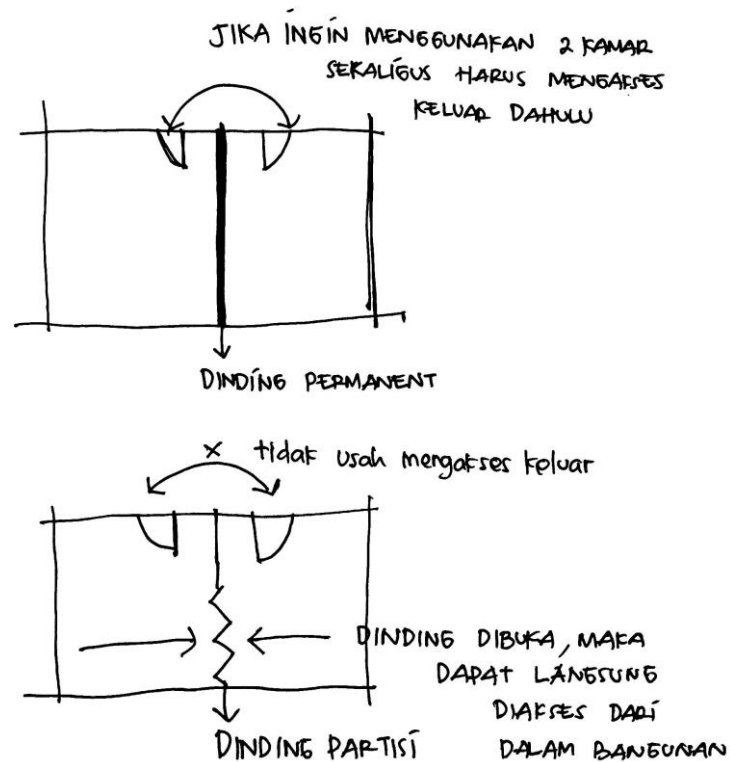 JIKA INGIN MENGGUNAKAN 2 KAMAR
SEKALIGUS HARUS MENGAKSES
KELUAR DAHULU
DINDING PERMANENT
x tidak usah mengakses keluar
DINDING DIBUKA, MAKA
DAPAT LANGSUNG
DIAKSES DARI
DALAM BANGUNAN
DINDING PARTISI